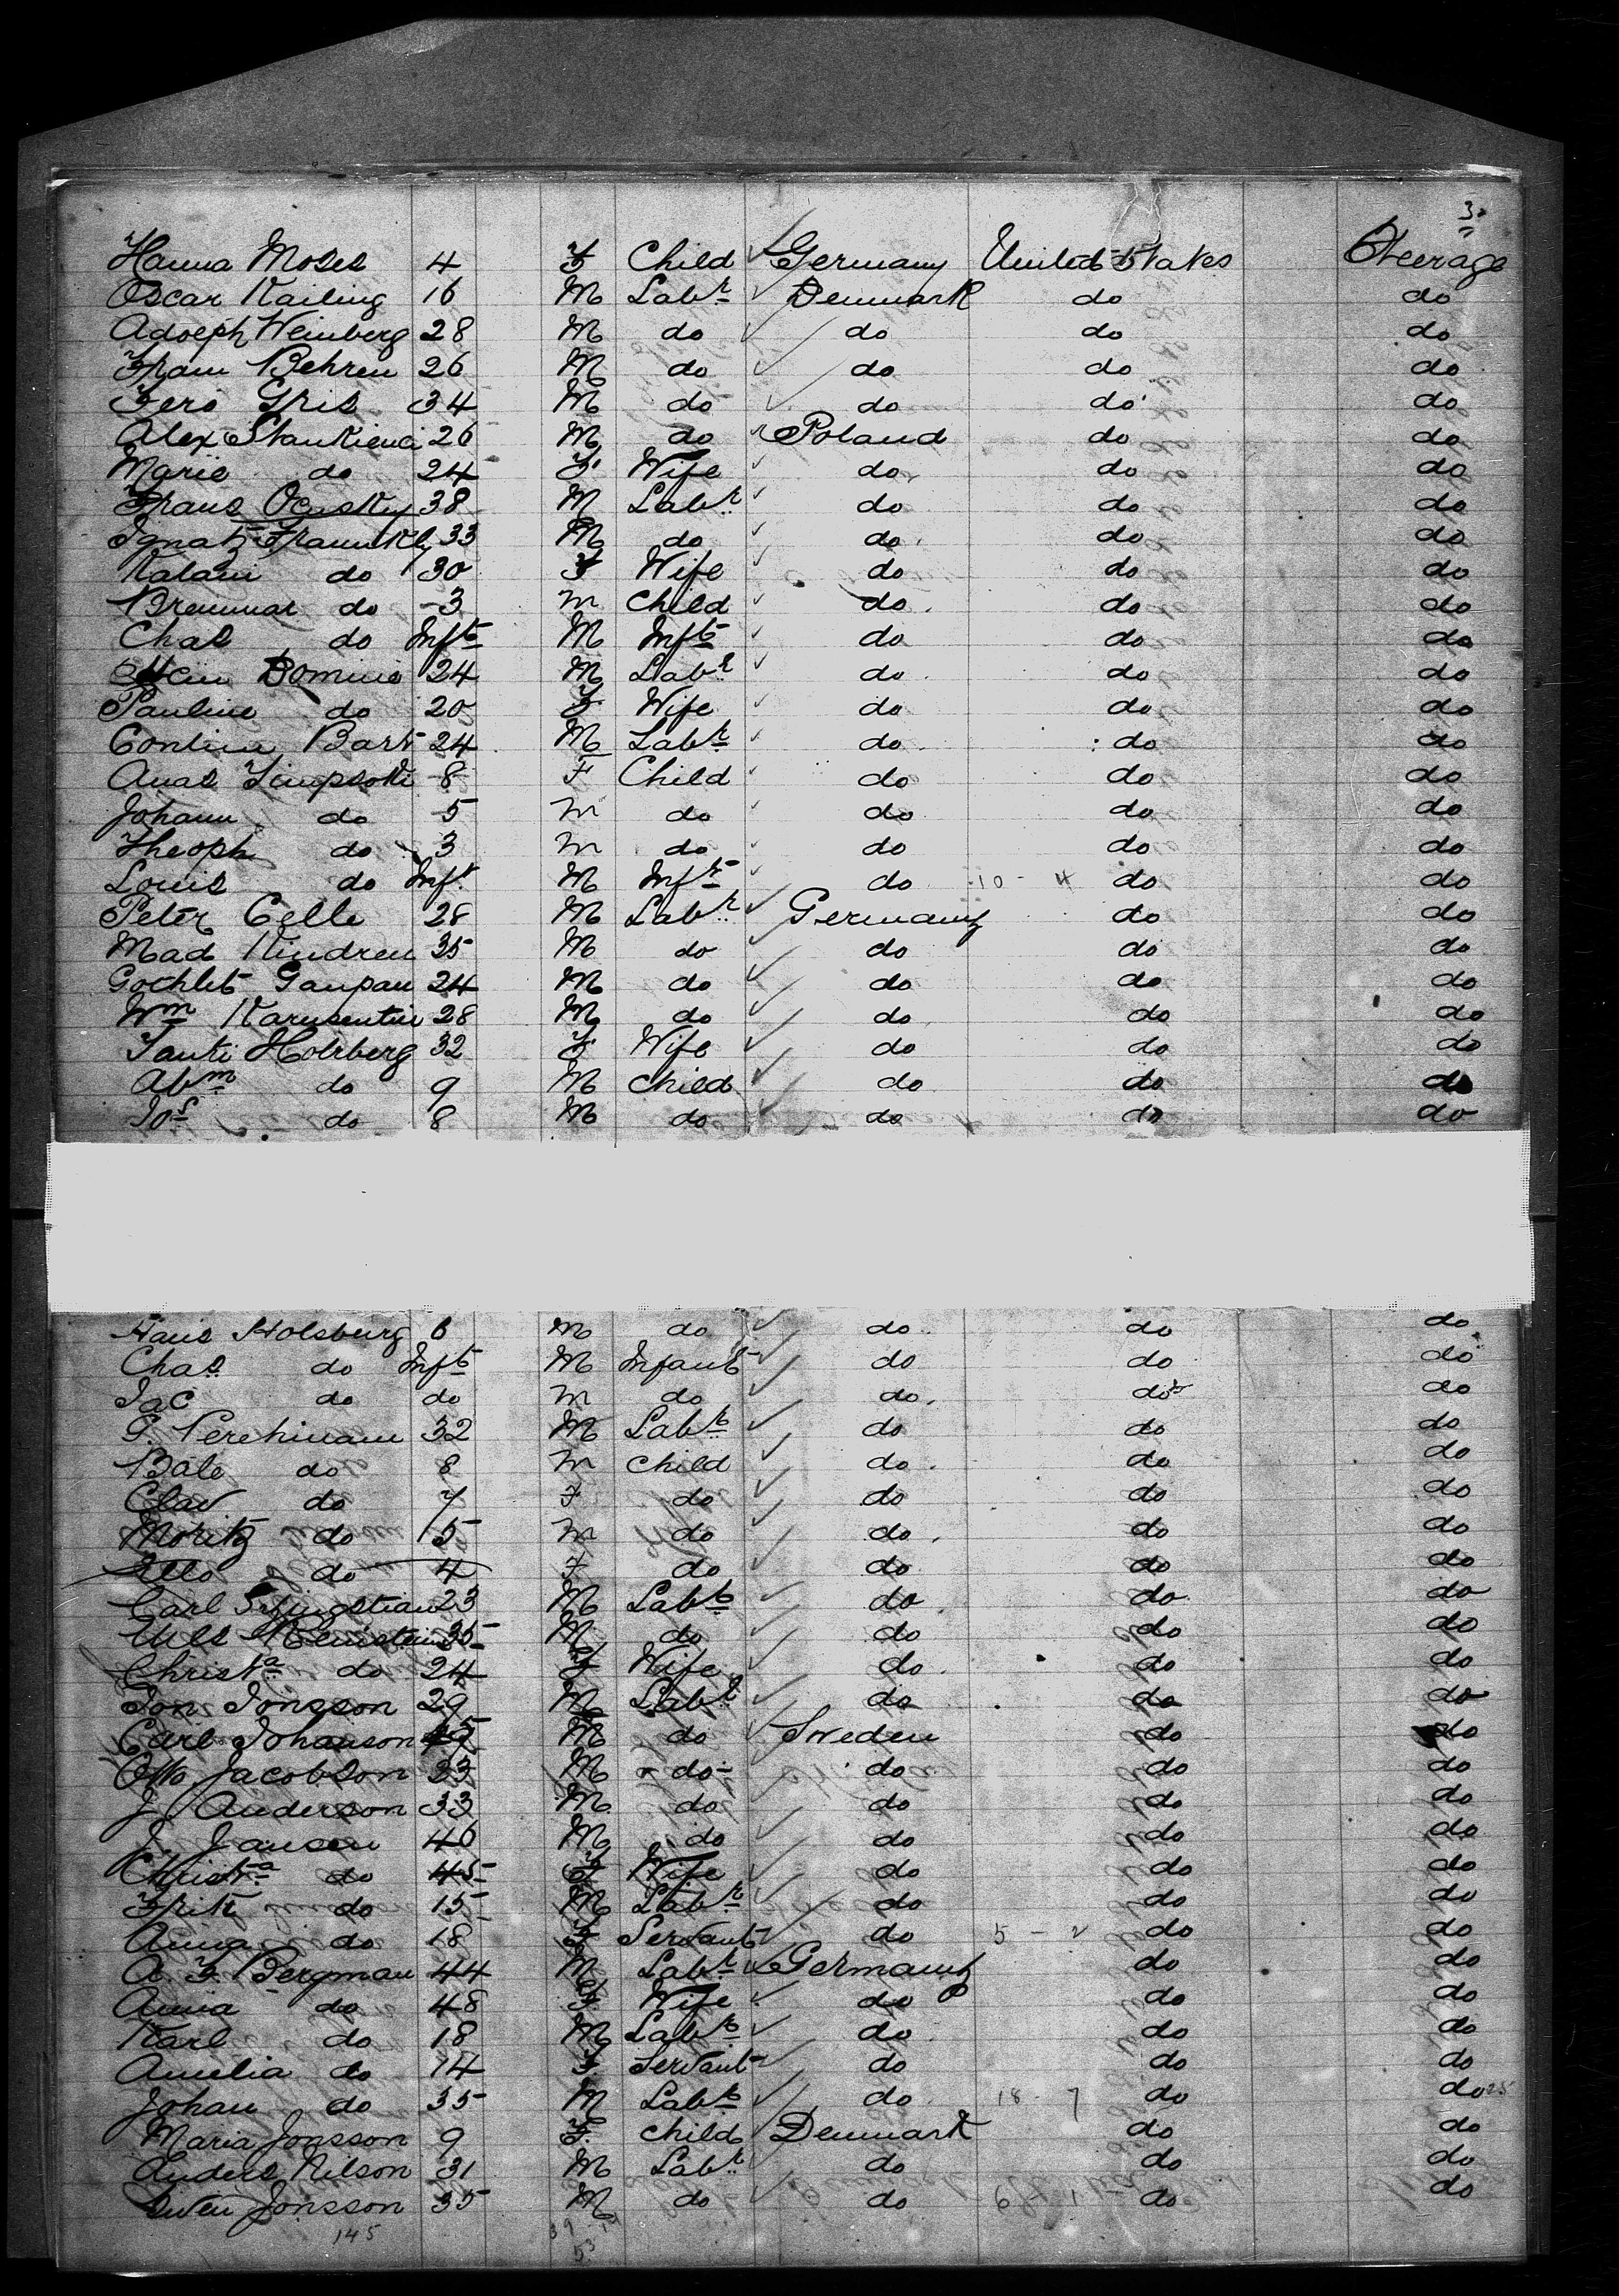 3
Hanna Moses 4 F Child Germany United States Steerage
Oscar Kailing 16 M Labr Denmark do do
Adolph Weinberg 28 M do do do do
Fram Behren 26 M do do do do
Fero Gris 34 M do do do do
Alex Stankienci 26 M do Poland do do
Marie do 24 F Wife do do do
Frans Ocusky 38 M Labr do do do
Ignatz 33 M do do do do
Kalani do 30 F Wife do do do
Bremmar do 3 m Child do do do
Chas do Inft M Inft do do do
Dominio 24 M Labr do do do
Pauline do 20 F Wife do do do
Contina Bart 24 M Labr do do do
Anas 8 F Child do do do
Johann do 5 m do do do do
Theoph do 3 m do do do do
Louis do Inft M Inft do 10 - 4 do do
Peter Celle 28 M Labr Germany do do
Mad Kindren 35 M do do do do
Gochlet Gaupau 24 M do do do do
Wm Karusentin 28 M do do do do
Tauti Holrberg 32 F Wife do do do
Abm do 9 M Child do do do
Jos do 8 M do do do do
Hans Holsburg 6 m do do do do
Chas do Inft M Infant do do do
Jac do do m do do do do
G. Perehinam 32 M Labr do do do
Bale do 8 m Child do do do
Clav do 7 F do do do do
Moritz do 5 m do do do do
Ello do 4 F do do do do
Carl 23 M Labr do do do
35 M do do do do
Christa do 24 F Wife do do do
Jon Jonsson 29 M Labr do do do
Carl Johanson M do Sweden do do
Otto Jacobson 23 M do do do do
J. Anderson 33 M do do do do
J. Jansen 46 M do do do do
Christa do 45 F Wife do do do
Fritz do 15 M Labr do do do
Anna do 18 F Servant do 5 - 2 do do
A. F. Bergman 44 M Labr Germany do do
Anna do 48 F Wife do do do
Karl do 18 M Labr do do do
Amelia do 14 F Servant do do do
Johan do 35 M Labr do 18 - 7 do do 25
Maria Jonsson 9 F Child Denmark do do
Anders Nilson 31 M Labr do do do
Swen Jonsson 35 M do do 6 - 1 do do
145 39 14
53